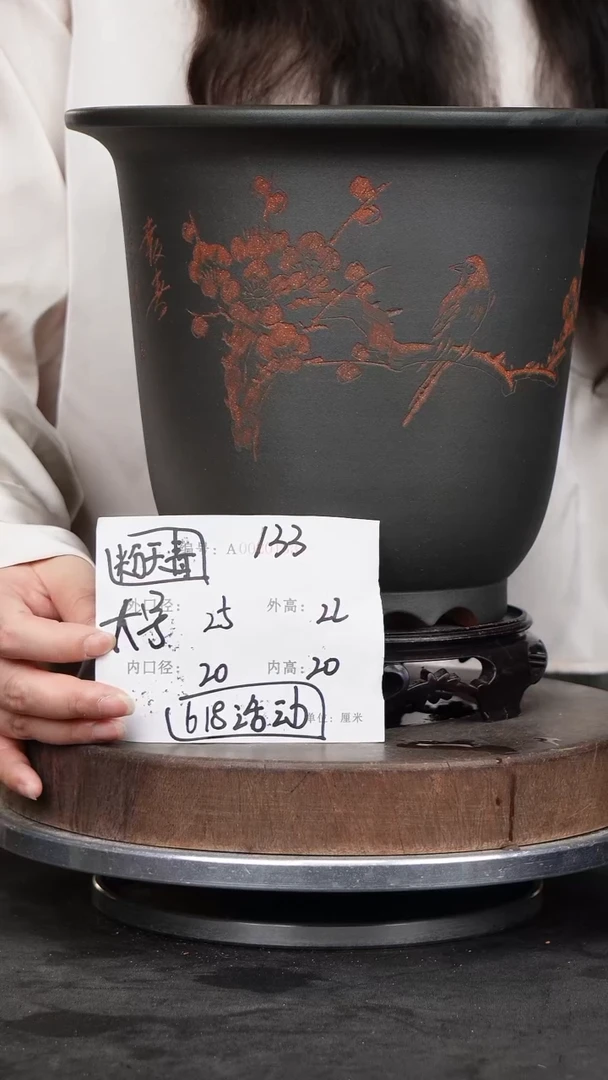 粉天青 编号：A00 133
外口径：25 外高：22
大号
内口径：20 内高：20
618活动 单位：厘米